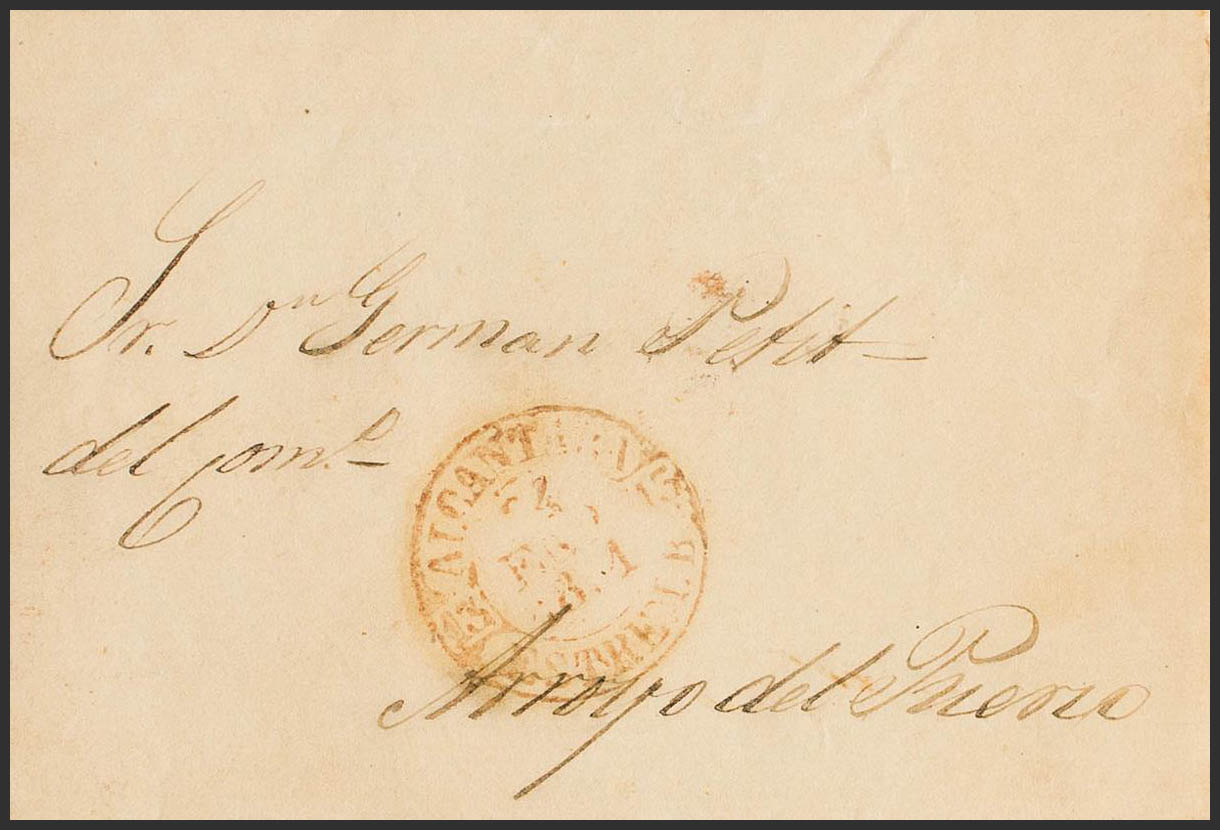 Sr. Dn German Petit
del Como
ALCANTARA
24
EXTREM.B.
Arroyo del Puerco